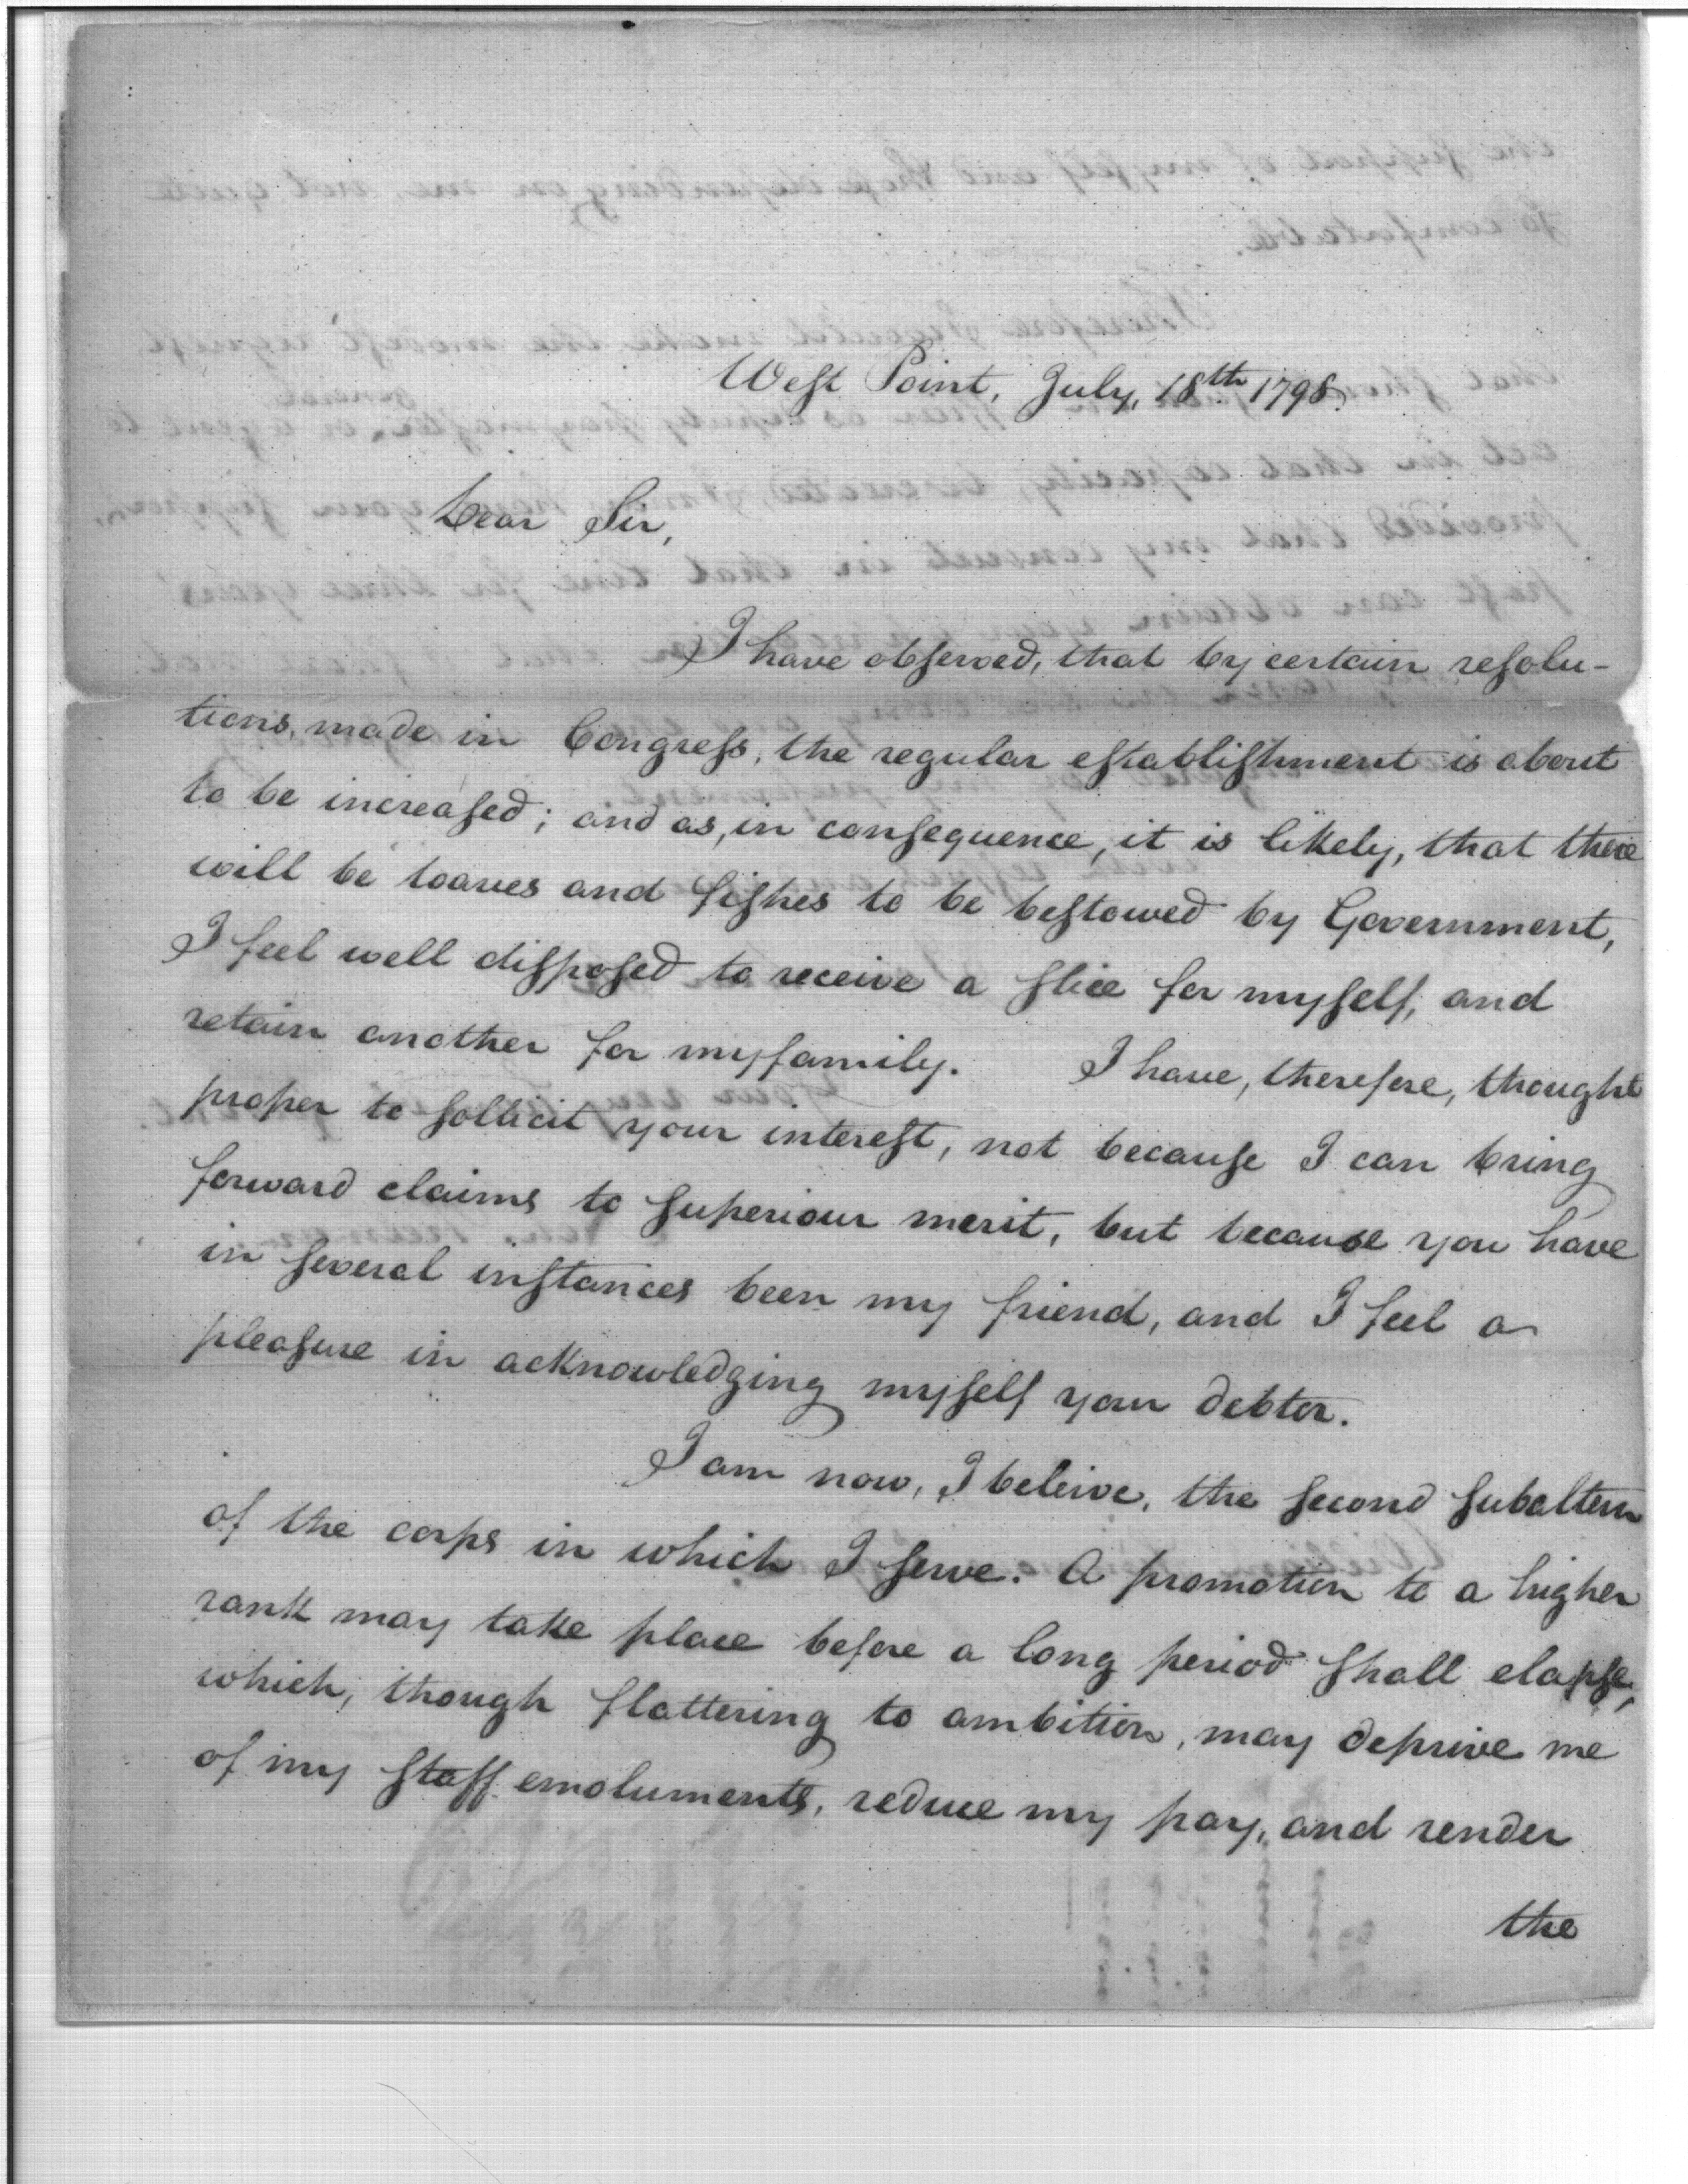 West Point, July, 18th 1798.
Dear Sir,
I have observed, that by certain resolu-
tions, made in Congress, the regular establishment is about
to be increased; and as, in consequence, it is likely, that there
will be loaves and fishes to be bestowed by Government,
I feel well disposed to receive a slice for myself, and
retain another for my family. I have, therefore, thought
proper to sollicit your interest, not because I can bring
forward claims to superiour merit, but because you have
in several instances been my friend, and I feel a
pleasure in acknowledging myself your debtor.
I am now, I beleive, the second subaltern
of the corps in which I serve. A promotion to a higher
rank may take place before a long period shall elapse,
which, though flattering to ambition, may deprive me
of my staff emoluments, reduce my pay, and render
the